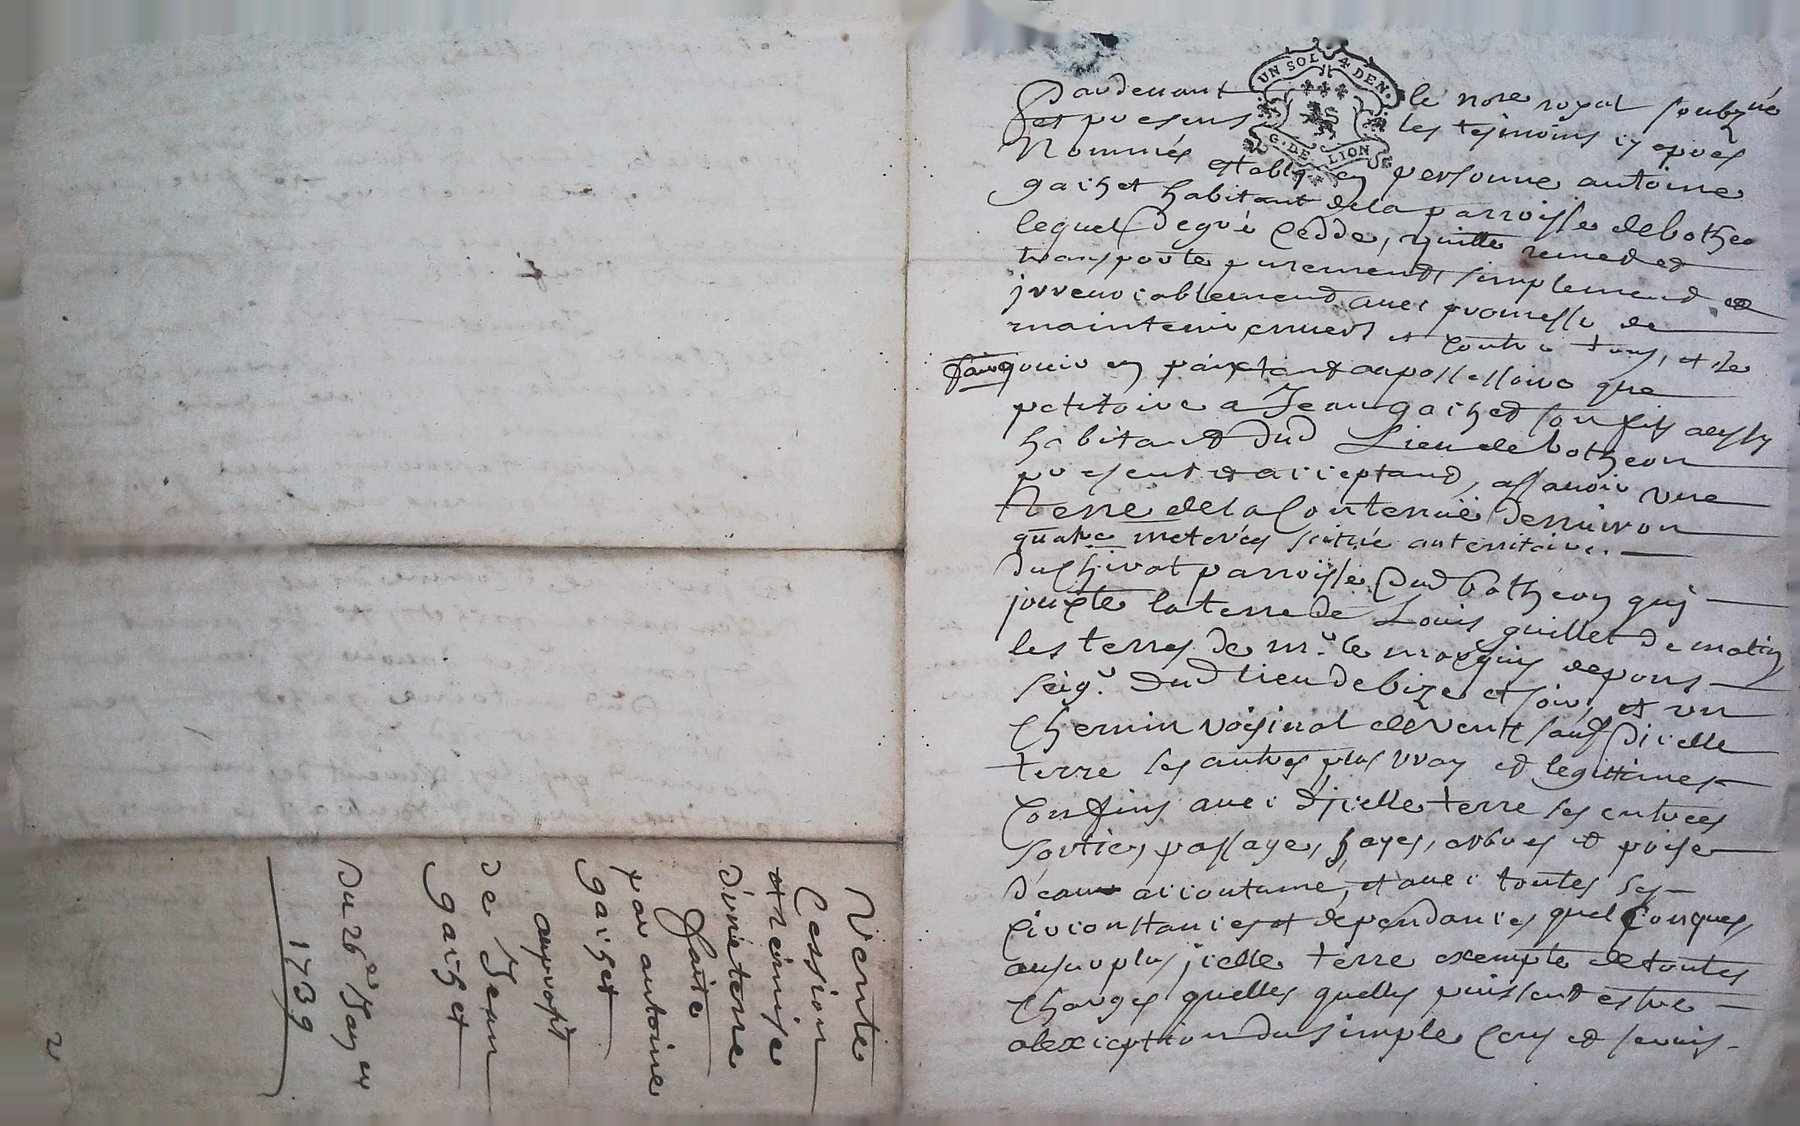 Vente
Cession
et remise
d'une terre
faitte
par antoine
gaichet
auprofit
de Jean
gaichet
Du 26e Janer
1739
2
UN SOL 4 DEN.
G. DE LION
Pardevant le nore royal soubzné
et presens les tesmoins cy apres
Nommés estably en personne antoine
gaichet habitant dela parroisse de botheo
lequel de gré cedde, quitte remet et
transporte purement, simplement et
jrrevocablement avec promesse de
maintenir envers et contre tous, et de
faire jouir en paix tant au possessoire que
petitoire a Jean gaichet son fils aussy
habitant dud Lieu de botheon
present et acceptant, assavoir une
Terre dela Contenüe denviron
quatre meterées scitüé au territoire
du Chivot parroisse dud botheon qui
jouxte la terre de Louis guillet de matin
les terres de mr. le marquis de pons
seigr. dud lieu de bize et soir, et un
Chemin voisinal de vent sauf dicelle
terre ses autres plus vray et legittimes
Confins avec djcelle terre ses entrées
sorties, passages, hayes, arbres et prise
d'eau accoutumé, et avec toutes ses
Circonstances et dépendances quelconques,
au surplus jcelle terre exempte de toutes
Charges quelles quelles puissent estre
alexception du simple Cens et servis